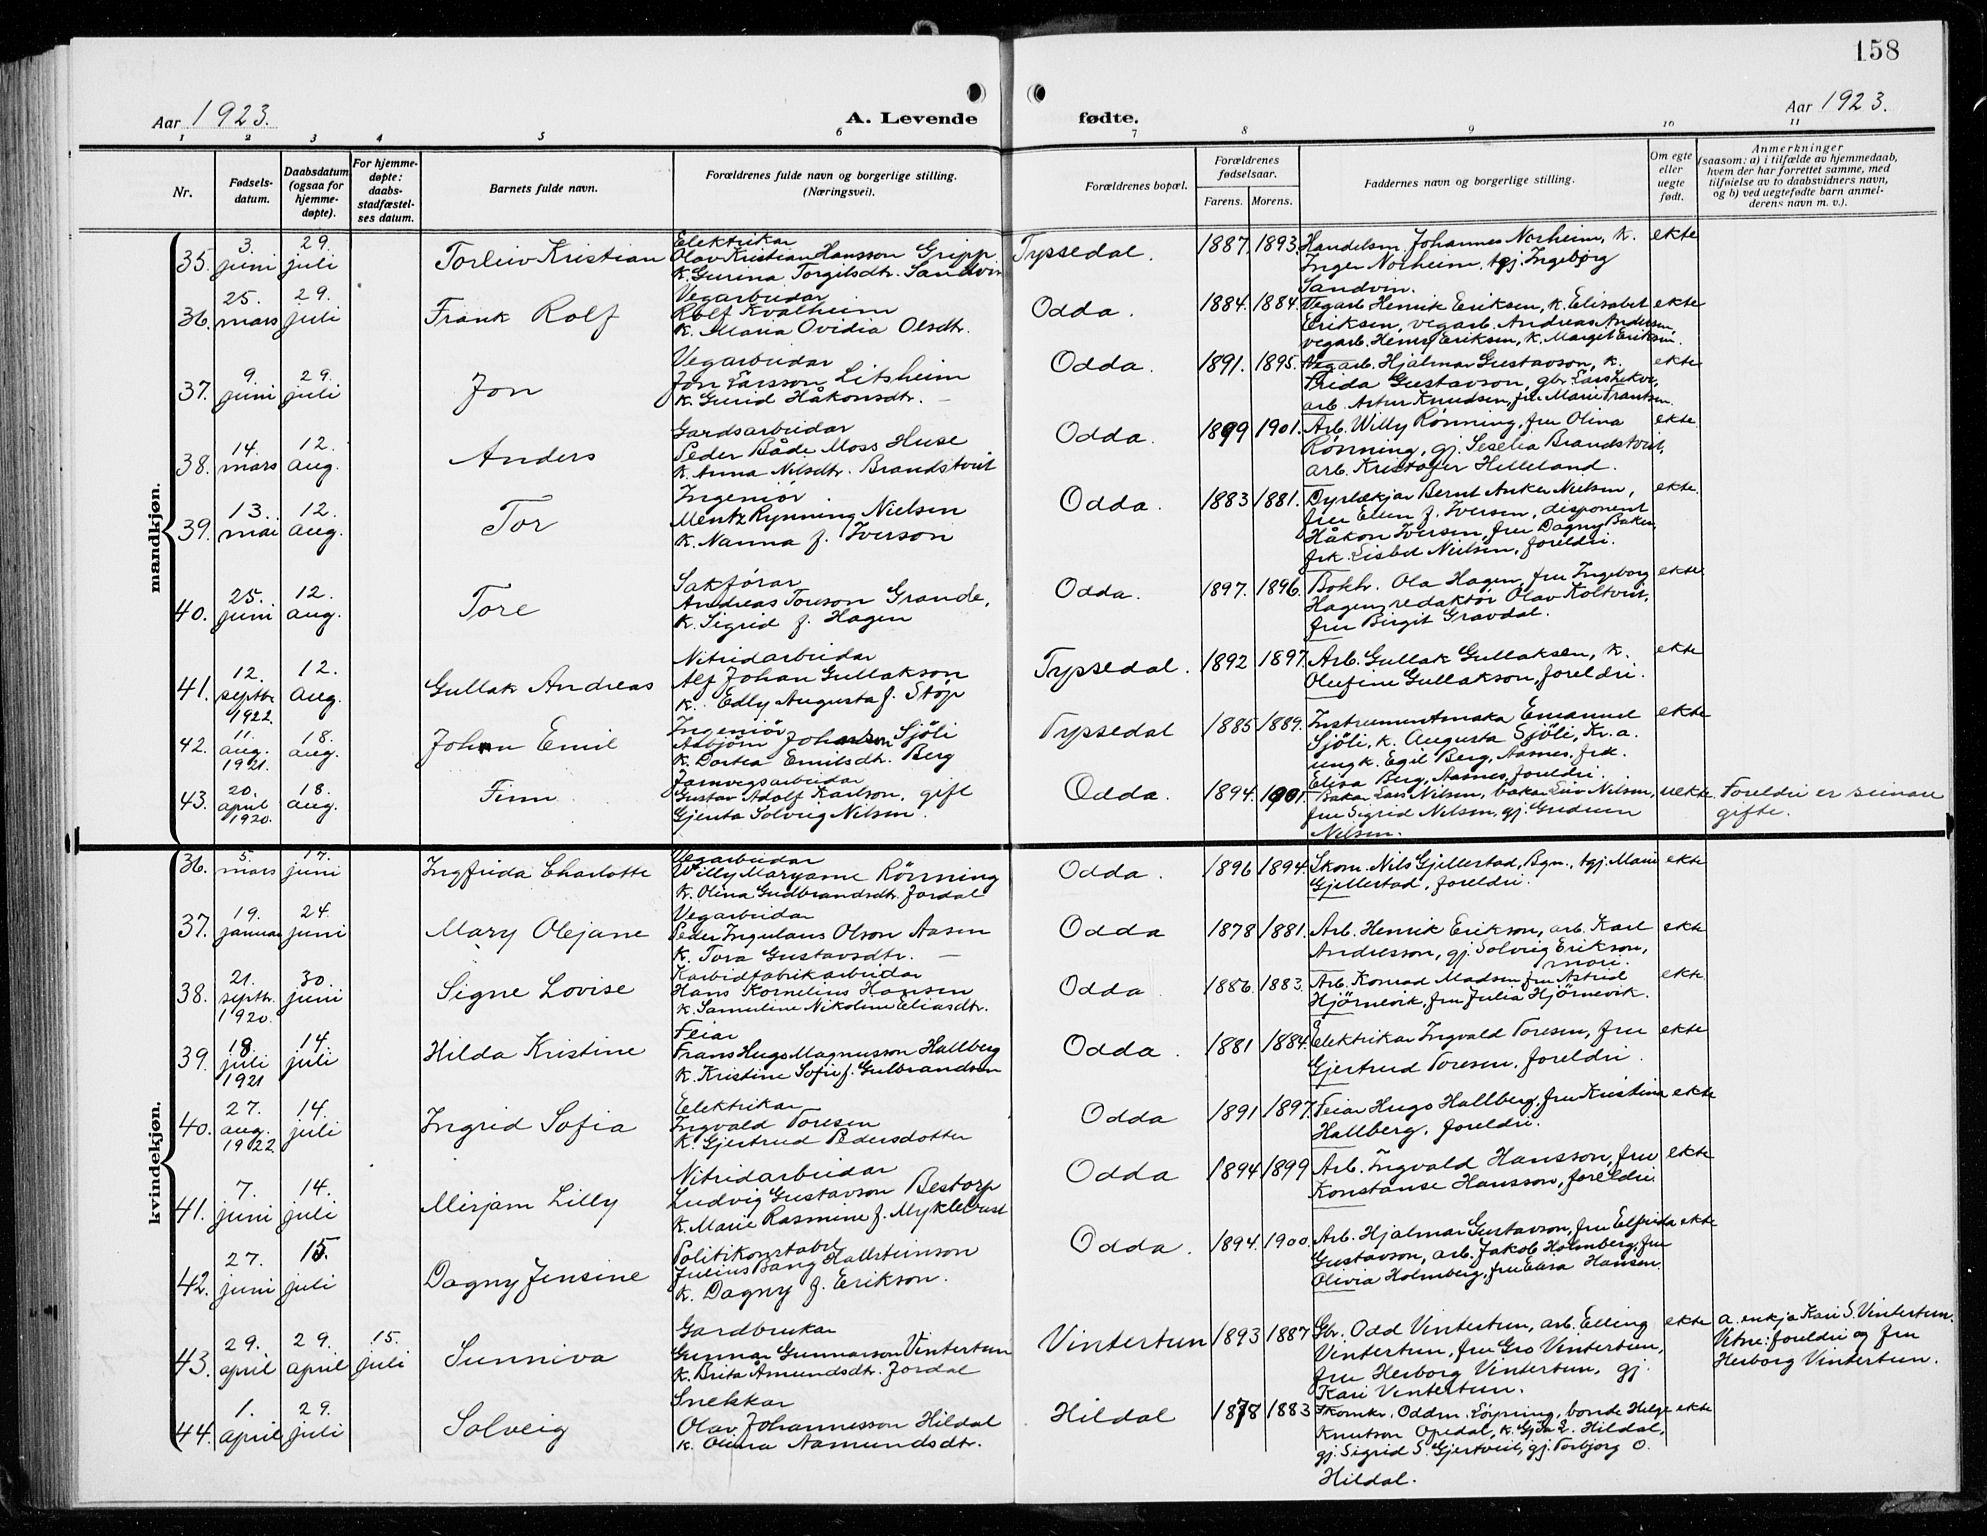 158
Aar 1923.
A. Levende fødte.
Aar 1923.
1 2 3 4 5 6 7 8 9 10 11
Nr.
Fødsels-
datum.
Daabsdatum
(ogsaa for
hjemme-
døpte).
For hjemme-
døpte:
daabs-
stadfæstel-
ses datum.
Barnets fulde navn.
Forældrenes fulde navn og borgerlige stilling.
(Næringsvei).
Forældrenes bopæl.
Forældrenes
fødselsaar.
Farens. Morens.
Faddernes navn og borgerlige stilling.
Om egte
eller
uegte
født.
Anmerkninger
(saasom: a) i tilfælde av hjemmedaab,
hvem der har forrettet samme, med
tilføielse av to daabsvidners navn,
og b) ved uegtefødte barn anmel-
derens navn m. v.).
mandkjøn.
35. 3. juni 29. juli Torleiv Kristian
Elektrikar
Olav Kristian Hansson Gripp
k. Gurina Torgilsdtr. Sandvin
Tyssedal. 1887. 1893.
Handelsm. Johannes Norheim, k.
Inger Norheim, tgj. Ingebørg
Sandvin.
ekte
36. 25. mars 29. juli Frank Rolf
Vegarbeidar
Rolf Kvalheim
k. Maria Ovidia Olsdtr.
Odda. 1884. 1884.
Vegarb. Henrik Eriksen, k. Elisabet
Eriksen, vegarb. Andreas Andersen,
vegarb. Henry Eriksen, k. Margit Eriksen.
ekte
37. 9. juni 29. juli Jon
Vegarbeidar
Jon Larsson Litsheim
k. Gurid Håkonsdtr. —
Odda. 1891. 1895.
Vegarb. Hjalmar Gustavson, k.
Frida Gustavson, gbr. Lars
arb. Artur Knudsen, fru Marie Frantsen.
ekte
38. 14. mars 12. aug. Anders
Gardsarbeidar
Peder Både Moss Huse
k. Anna Nilsdtr. Brandstveit
Odda. 1899 1901.
Arb. Willy Rønning, fru Olina
Rønning, gj. Seselia Brandstveit,
arb. Kristofer Helleland.
ekte
39. 13. mai 12. aug. Tor
Ingeniør.
Mentz Rynning Nielsen
k. Nanna f. Iverson
Odda. 1883 1881.
Dyrlækjar Bernt Anker Nielsen,
fru Ellen f. Iversen, disponent
Håkon Iversen, fru Dagny Baker,
frk. Lisbet Nielsen, foreldri.
ekte.
40. 25. juni 12. aug. Tore
Sakførar
Andreas Toreson Grande,
k. Sigrid f. Hagen
Odda. 1897. 1896.
Bokh. Ola Hagen, fru Ingeborg
Hagen, redaktør Olav Koltveit,
fru Birgit Gravdal.
ekte
41. 12. septbr. 1922. 12. aug. Gullak Andreas
Nitridarbeidar
Alf Johan Gullakson
k. Edly Augusta f. Støp
Tyssedal. 1892 1897.
Arb. Gullak Gullaksen, k.
Olufine Gullakson, foreldri.
ekte
42. 11. aug. 1921. 18. aug. Johan Emil
Ingeniør
Asbjørn Johansen Sjöli
k. Dortea Emilsdtr. Berg
Tyssedal 1885 1889.
Instrumentmaka Emanuel
Sjöli, k. Augusta Sjöli, Kr.a.
ungk. Egil Berg, Aasnes, frk.
Elisa Berg, Aasnes, foreldri.
ekte
43. 20. april 1920. 18. aug. Finn
Jarnvegsarbeidar
Gustav Adolf Karlson, gift
Gjenta Solveig Nilsen.
Odda. 1894. 1901.
Bakar Lars Nilsen, bakar Leiv Nilsen,
fru Sigrid Nelsen, gj. Gudrun
Nelsen.
uekte.
Foreldri er seinare
gifte.
kvindekjøn.
36. 5. mars 17. juni Ingfrida Charlotte
Vegarbeidar
Willy Maryanne Rönning
k. Olina Gudbrandsdtr. Jordal
Odda. 1896 1894.
Skom. Nils Gjellestad, Bgn., tgj. Marie
Gjellestad, foreldri.
ekte
37. 19. januar 24. juni Mary Olejane
Vegarbeidar
Peder Ingulaus Olson Aasen
k. Tora Gustavsdtr. —
Odda 1878 1881.
Arb. Henrik Erikson, arb. Karl
Andresson, gj. Solveig Erikson,
mori.
ekte
38. 21. septbr. 1920. 30. juni Signe Lovise
Karbidfabrikarbeidar
Hans Kornelius Hansen
k. Samuline Nikoline Eliasdtr.
Odda 1886. 1883.
Arb. Konrad Madsen, fru Astrid
Hjörnevik, fru Julia Hjörnevik.
ekte
39. 18. juli 1921 14. juli Hilda Kristine
Feiar
Frans Hugo Magnusson Hallberg
k. Kristine Sofie f. Gulbrandsen
Odda. 1881 1884.
Elektrikar Ingvald Toresen, fru
Gjertrud Toresen, foreldri.
ekte
40. 27. aug. 1922 14. juli Ingrid Sofia
Elektrikar
Ingvald Toresen
k. Gjertrud Pedersdotter
Odda 1891 1897.
Feiar Hugo Hallberg, fru Kristina
Hallberg, foreldri.
ekte
41. 7. juni 14. juli Mirjam Lilly
Nitridarbeidar
Ludvig Gustavson Bestorp
k. Marie Rasmine f. Myklebust
Odda 1894 1899
Arb. Ingvald Hansson, fru
Konstanse Hansson, foreldri.
ekte
42. 27. juni 15. juli Dagny Jensine
Politikonstabel
Julius Bang Hallsteinson
k. Dagny f. Erikson.
Odda. 1894. 1900.
Arb. Hjalmar Gustavson, fru Elfrida
Gustavson, arb. Jakob Holmberg, fru
Olivia Holmberg, fru Elisa Hansen.
ekte
43. 29. april 29. april 15. juli Sunniva
Gardbrukar
Gunnar Gunnarson Vintertun
k. Brita Amundsdtr. Jordal
Vintertun 1893 1887
Gbr. Odd Vintertun, arb. Elling
Vintertun, fru Gro Vintertun,
fru Herborg Vintertun, gj.
Kari Vintertun.
ekte
a. enkja Kari S. Vintertun.
Vitne: foreldri og fru
Herborg Vintertun.
44. 1. april 29. juli Solveig
Snekkar
Olav Johannesson Hildal
k. Olina Aamundsdtr.
Hildal 1878 1883
Skomkr. Oddm. Löyning, bonde Helge
Knutson Opedal, k. Gjöa L. Hildal,
gj. Sigrid S. Gjertveit, gj. Torbjorg O.
Hildal.
ekte